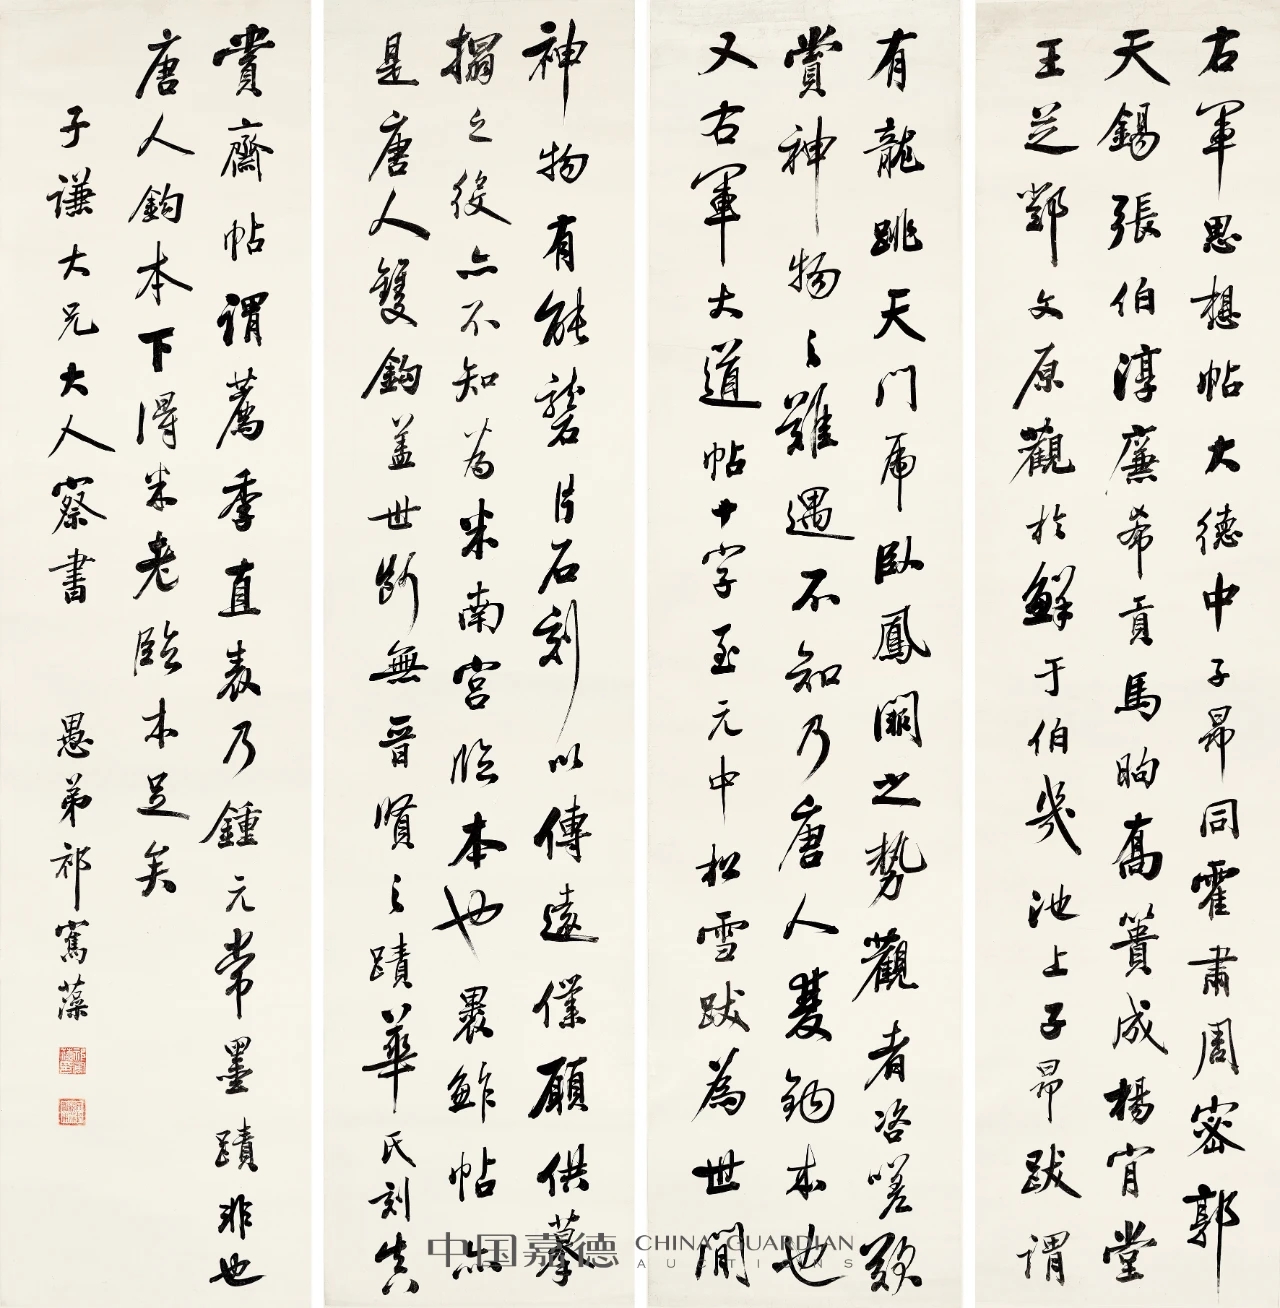 右軍思想帖大德中子昂同霍肅周密郭
天錫張伯淳廉希貢馬昫喬簣成楊肯堂
王芝鄧文原觀於鮮于伯幾池上子昂跋謂
有龍跳天門虎臥鳳閣之勢觀者咨嗟歎
賞神物神物之難遇不知乃唐人雙鉤本也
又右軍大道帖十字至元中松雪跋為世間
神物有能礱片石刻以傳遠僕願供摹
搨之役亦不知為米南宮臨本也裹鮓帖亦
是唐人雙鉤蓋世斷無晉賢之蹟華氏刻真
賞齋帖謂薦季直表乃鍾元常墨蹟非也
唐人鉤本下得米老臨本足矣
子謙大兄大人察書
愚弟祁寯藻
中国嘉德 CHINA GUARDIAN AUCTIONS